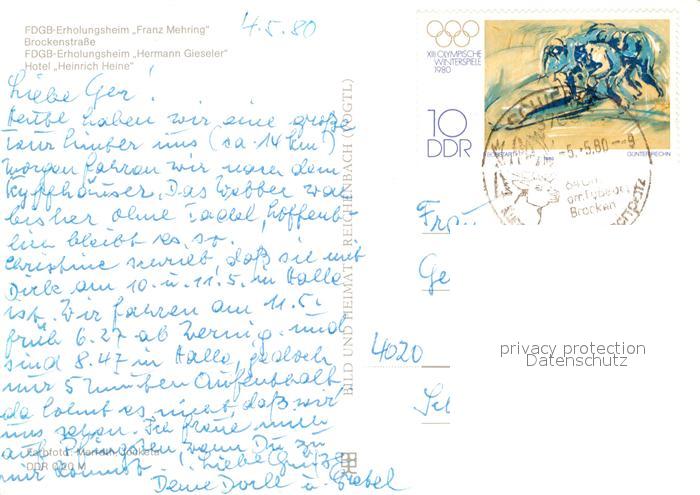 4.5.80
FDGB-Erholungsheim „Franz Mehring"
Brockenstraße
FDGB-Erholungsheim „Hermann Gieseler"
Hotel „Heinrich Heine"
Liebe Ger !
Heute haben wir eine große
Tour hinter uns (ca 14 km)
Morgen fahren wir nach dem
Kyffhäuser, Das Wetter war
bisher ohne Tadel, hoffent-
lich bleibt es so.
Christine schrieb, daß sie mit
Dirk am 10. u. 11.5. in Halle
ist. Wir fahren am 11.5.
früh 6.27 ab Wernig. und
sind 8.47 in Halle, jedoch
nur 5 Minuten Aufenthalt,
da lohnt es nicht, daß wir
uns sehen. Ich freue mich
auf Pfingsten, wenn Du zu
mir kommst. Liebe Grüße
Deine u.
Farbfoto:
DDR 0,20 M
BILD UND HEIMAT REICHENBACH (VOGTL)
XIII OLYMPISCHE
WINTERSPIELE
1980
10
DDR
GÜNTER RECHN
-5.-5.80--9
Brocken
Frau
Ge
4020
privacy protection
Datenschutz